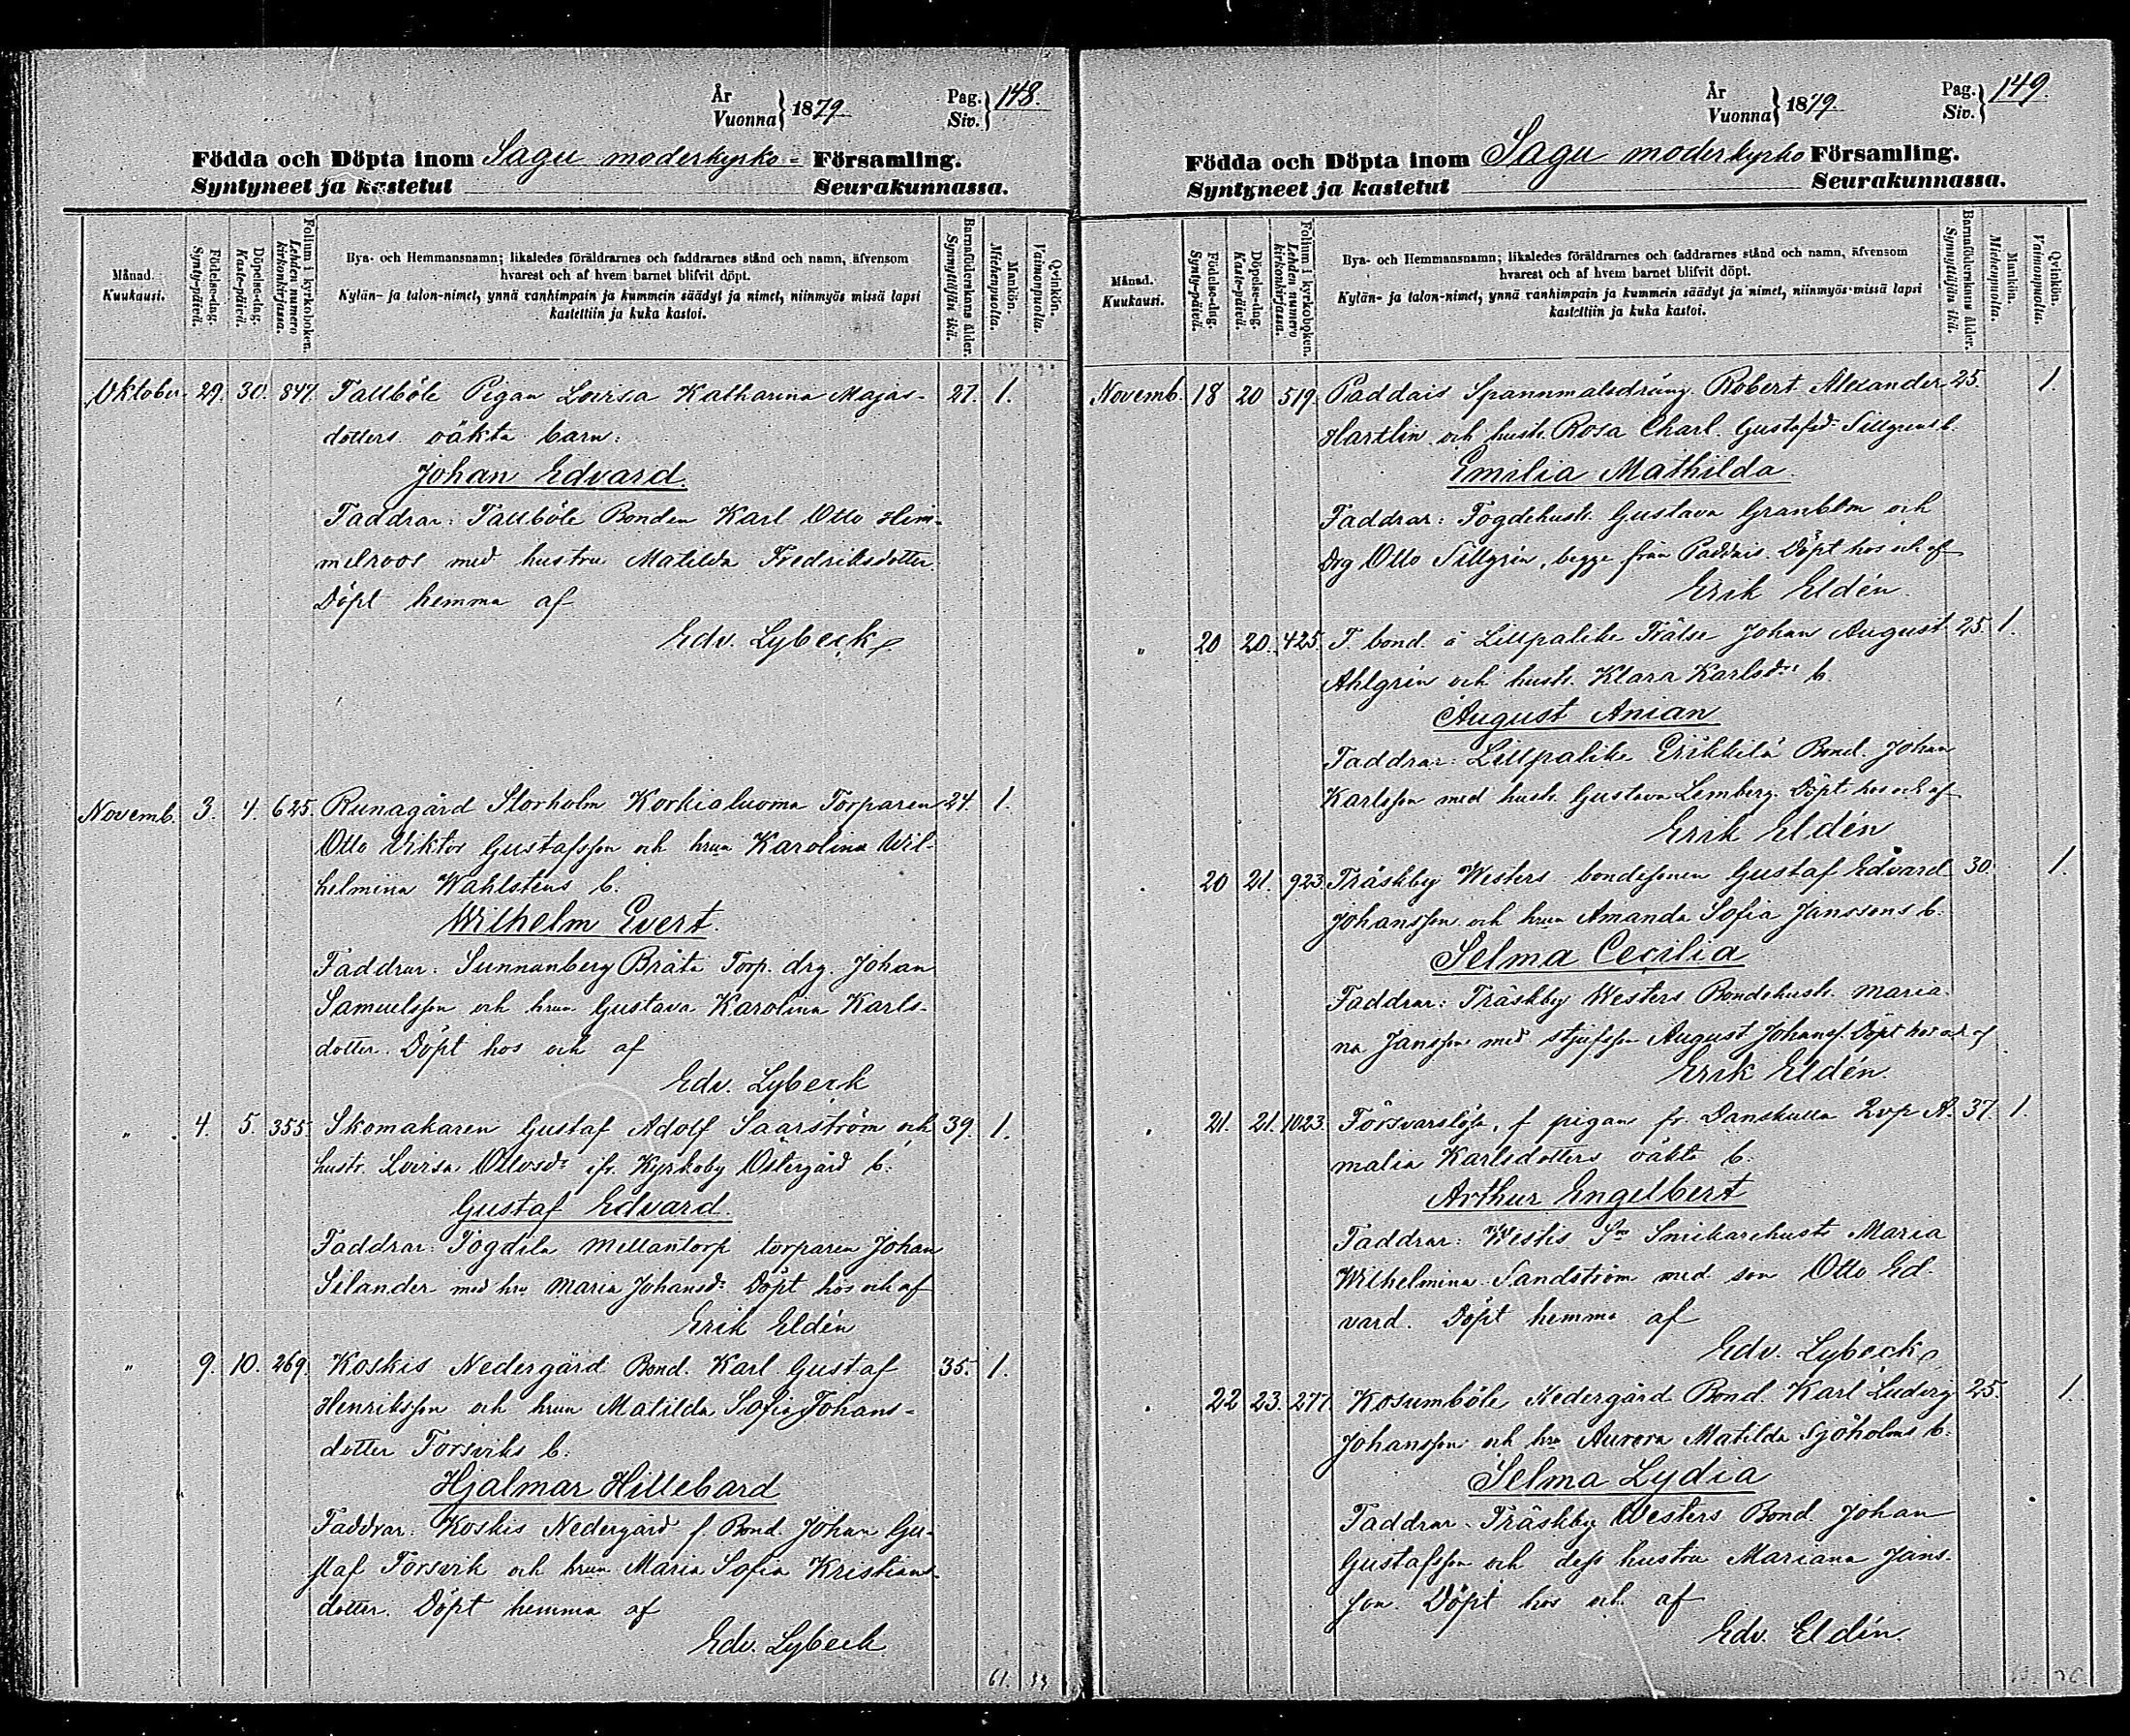 År
Vuonna } 1879.
Pag.
Siv. } 148.
Födda och Döpta inom Sagu moderkyrko- Församling.
Syntyneet ja kastetut Seurakunnassa.
Månad.
Kuukausi.
Födelse-dag.
Synty-päivä.
Döpelse-dag.
Kaste-päivä.
Folium i kyrkoboken.
Lehden numero kirkonkirjassa.
Bya- och Hemmansnamn; likaledes föräldrarnes och faddrarnes stånd och namn, äfvensom
hvarest och af hvem barnet blifvit döpt.
Kylän- ja talon-nimet, ynnä vanhimpain ja kummein säädyt ja nimet, niinmyös missä lapsi
kastettiin ja kuka kastoi.
Barnaföderskans ålder.
Synnyttäjän ikä.
Mankön.
Miehenpuolia.
Qvinkön.
Vaimonpuolia.
Oktober 29. 30. 847. Tallböle Pigan Lovisa Katharina Majas- 27. 1.
dotters oäkta barn:
Johan Edvard.
Faddrar: Tallböle Bonden Karl Otto Him-
melroos med hustru Matilda Fredriksdotter
Döpt hemma af
Edv. Lybeck
Novemb. 3. 4. 625. Runagård Storholm Korkialuoma Torparen 24. 1.
Otto Viktor Gustafsson och hrun Karolina Wil-
helmina Wahlstens b.
Wilhelm Evert.
Faddrar: Sunnanberg Bråta Torp. drg. Johan
Samuelsson och hrun Gustava Karolina Karls-
dotter. Döpt hos och af
Edv. Lybeck
" 4. 5. 355 Skomakaren Gustaf Adolf Saarström och 39. 1.
hustr. Lovisa Ottosdr. ifr. Kyrkoby Östergård b:
Gustaf Edvard.
Faddrar: Togdila Mellantorp torparen Johan
Silander med hru Maria Johansdr. Döpt hos och af
Erik Eldén
" 9. 10. 269. Koskis Nedergård Bond. Karl Gustaf 35. 1.
Henriksson och hrun Matilda Sofia Johans-
dotter Forsviks b:
Hjalmar Hillebard
Faddrar: Koskis Nedergård f. Bond. Johan Gu-
staf Forsvik och hrun Maria Sofia Kristians-
dotter. Döpt hemma af
Edv. Lybeck
61. 33
År
Vuonna } 1879.
Pag.
Siv. } 149.
Födda och Döpta inom Sagu moderkyrko Församling.
Syntyneet ja kastetut Seurakunnassa.
Månad.
Kuukausi.
Födelse-dag.
Synty-päivä.
Döpelse-dag.
Kaste-päivä.
Folium i kyrkoboken.
Lehden numero kirkonkirjassa.
Bya- och Hemmansnamn; likaledes föräldrarnes och faddrarnes stånd och namn, äfvensom
hvarest och af hvem barnet blifvit döpt.
Kylän- ja talon-nimet, ynnä vanhimpain ja kummein säädyt ja nimet, niinmyös missä lapsi
kastettiin ja kuka kastoi.
Barnaföderskans ålder.
Synnyttäjän ikä.
Mankön.
Miehenpuolia.
Qvinkön.
Vaimonpuolia.
Novemb. 18 20 519. Paddais Spannmalsdräng Robert Alexander 25. 1.
Hartlin och hustr. Rosa Charl. Gustafsd. Sillgrens b.
Emilia Mathilda
Faddrar: Fogdehustr. Gustava Granblom och
Drg Otto Sillgrén, begge från Paddais. Döpt hos och af
Erik Eldén.
" 20 20. 425. F. bond. å Lillpalike Frälse Johan August 25. 1.
Ahlgrén och hustr. Klara Karlsdr. b.
August Anian
Faddrar: Lillpalike Erikkilä Bond. Johan
Karlsson med hustr. Gustava Lemberg. Döpt hos och af
Erik Eldén
. 20 21. 923. Träskby Westers bondesonen Gustaf Edvard 30. 1.
Johansson och hrun Amanda Sofia Janssons b.
Selma Cecilia
Faddrar: Träskby Westers Bondehustr. Maria-
na Jansson med styfson August Johanss. Döpt hos och af
Erik Eldén.
. 21. 21. 1023. Försvarslösa, f pigan fr. Danskulla A- 37. 1.
malia Karlsdotters oäkta b:
Arthur Engelbert
Faddrar: Westis Snickarehustr Maria
Wilhelmina Sandström med son Otto Ed-
vard. Döpt hemma af
Edv. Lybeck
. 22 23. 277. Kosumböle Nedergård Bond. Karl Ludvig 25. 1.
Johansson och hru Aurora Matilda Sjöholms b.
Selma Lydia
Faddrar Träskby Westers Bond Johan
Gustafsson och dess hustru Mariana Jans-
son. Döpt hos och af
Edv. Eldén.